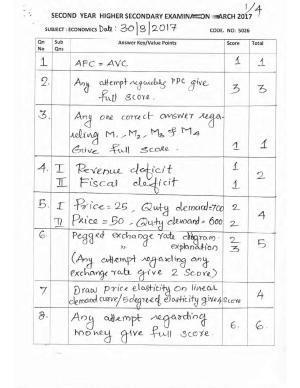 1/4
SECOND YEAR HIGHER SECONDARY EXAMINATION MARCH 2017
SUBJECT : ECONOMICS Date: 30/3/2017 CODE. NO: 5026
Qn No Sub Qns Answer Key/Value Points Score Total
1 AFC = AVC 1 1
2. Any attempt regarding PPC give 3 3
full score.
3. Any one correct answer rega-
rding M1, M2, M3 & M4
Give full score. 1 1
4. I Revenue deficit 1 2
II Fiscal deficit 1
5. I Price=25, Quty demand=700 2 4
II Price=50, Quty demand=600 2
6. Pegged exchange rate diagram 2 5
" explanation 3
(Any attempt regarding any
exchange rate give 2 Score)
7 Draw price elasticity on linear
demand curve/5 degree of elasticity give 4 Score 4
8. Any attempt regarding
money give full score. 6. 6